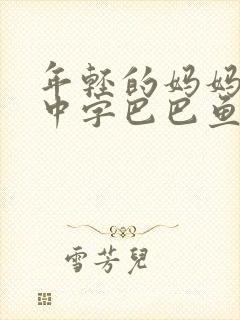 年轻的妈妈
中字巴巴鱼
雪芳兒